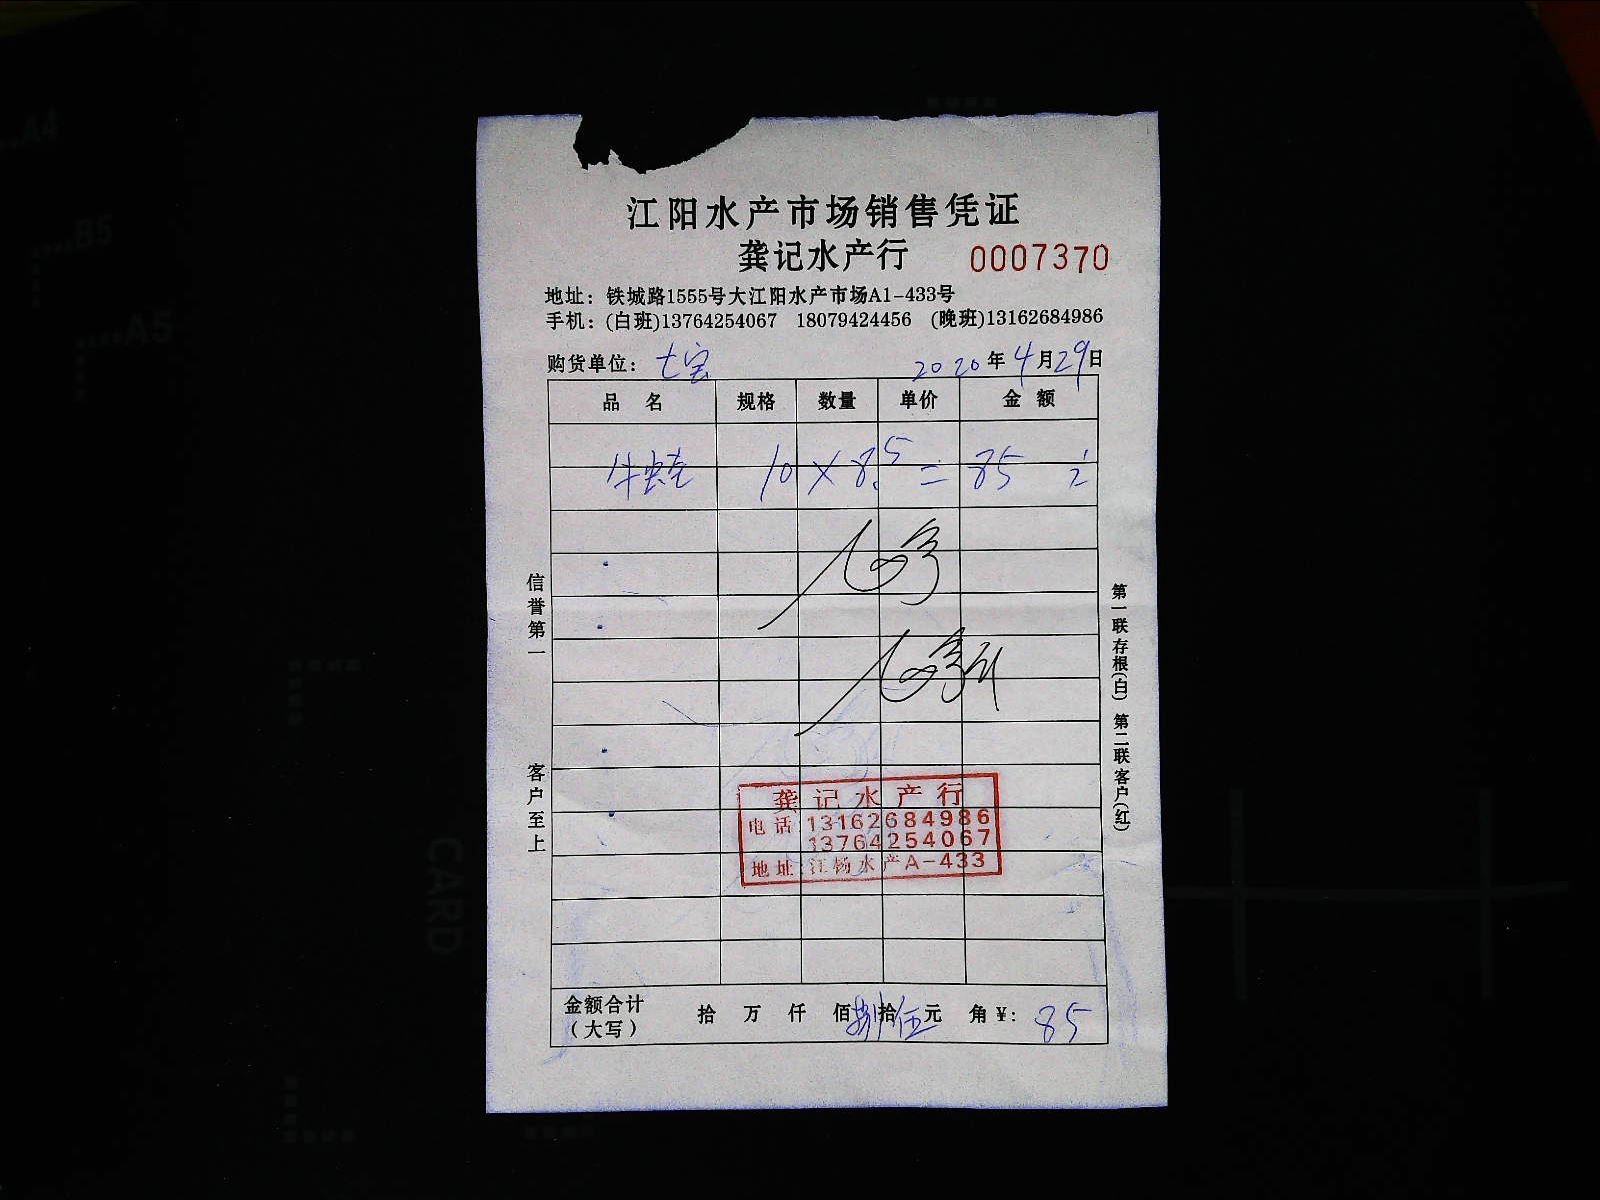 江阳水产市场销售凭证
龚记水产行 0007370
地址：铁城路1555号大江阳水产市场A1-433号
手机：(白班)13764254067 18079424456 (晚班)13162684986
购货单位：七宝 2020年4月29日
品 名 规格 数量 单价 金 额
牛蛙 10 × 8.5 = 85
信誉第一
客户至上
第一联存根(白) 第二联客户(红)
龚记水产行
电话 13162684986
13764254067
地址:江杨水产A-433
金额合计 拾 万 仟 佰 捌 拾 伍 元 角 ¥: 85
(大写)
A4
B5
A5
CARD